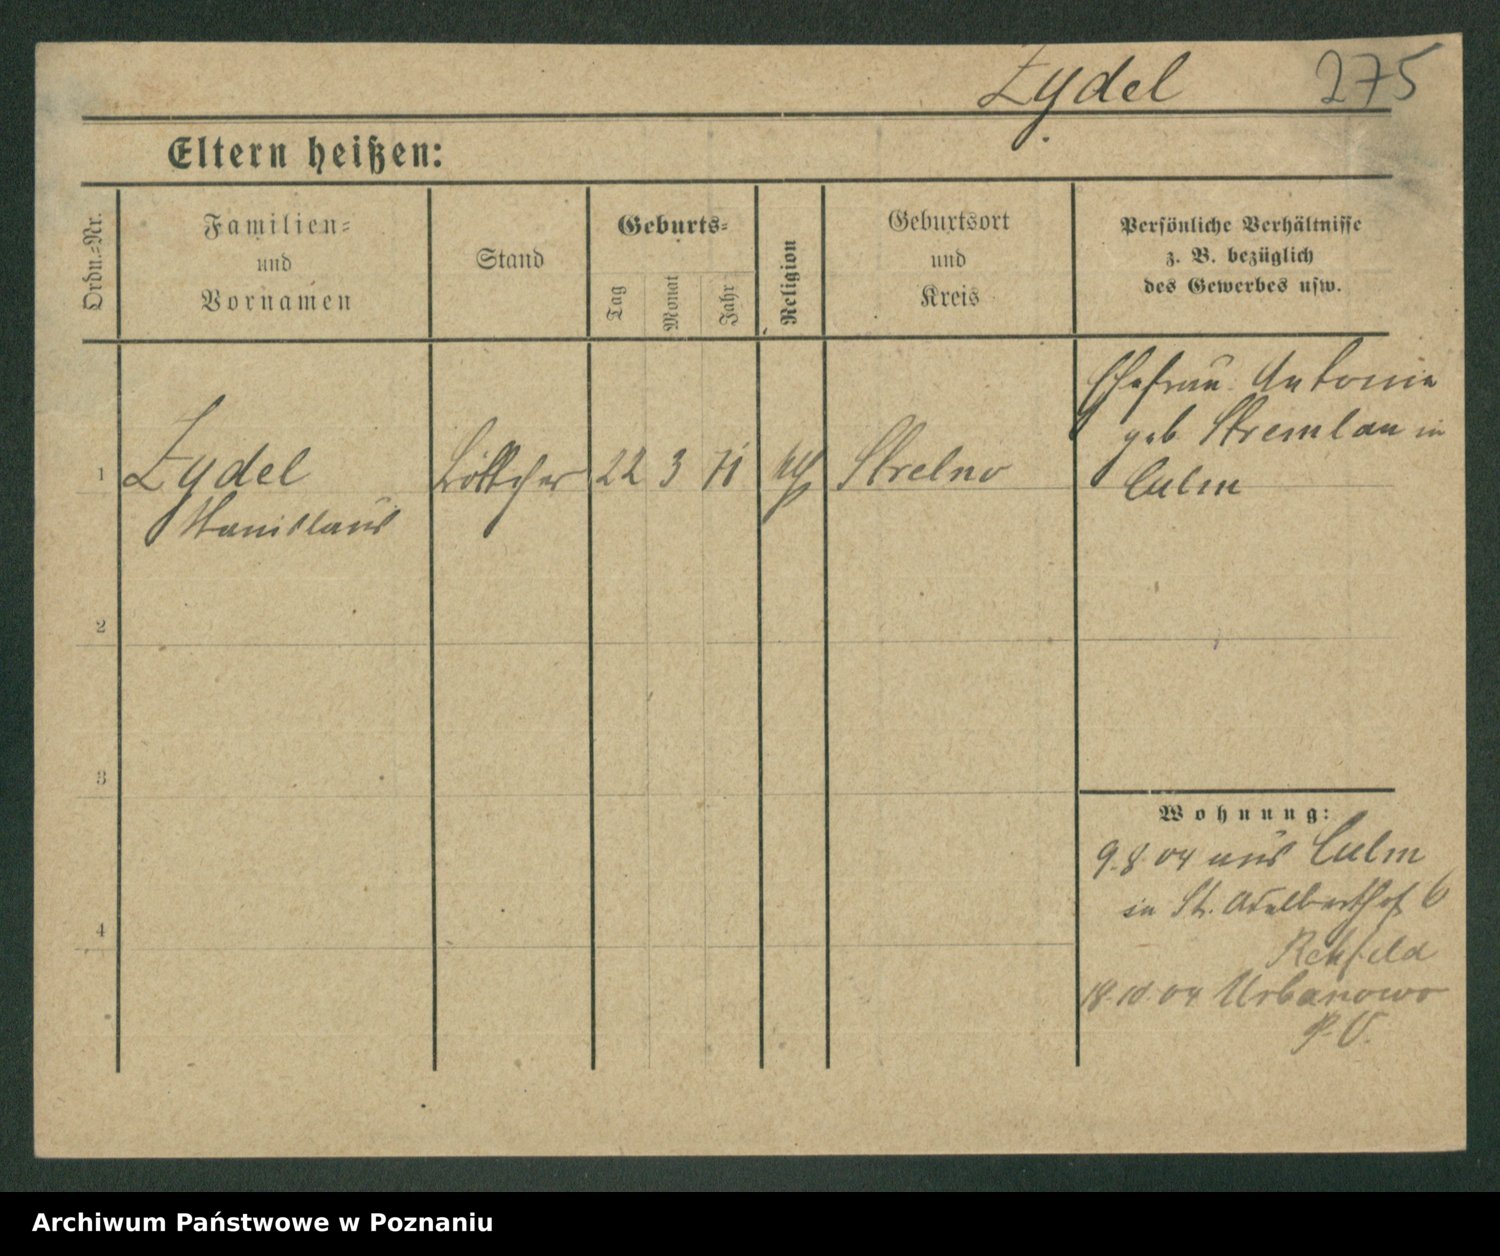 Zydel 275
Eltern heißen:
Ordn.-Nr.
Familien-
und
Vornamen
Stand
Geburts-
Tag
Monat
Jahr
Religion
Geburtsort
und
Kreis
Persönliche Verhältnisse
z. B. bezüglich
des Gewerbes usw.
1 Zydel Böttcher 22 3 71 Strelno
Stanislaus
Ehefrau Antonie
geb Stremlau in
Culm
2
3
4
Wohnung:
9.8.04 aus Culm
in St. Adalberthof 6
Rehfeld
18.10.04 Urbanowo
P.V.